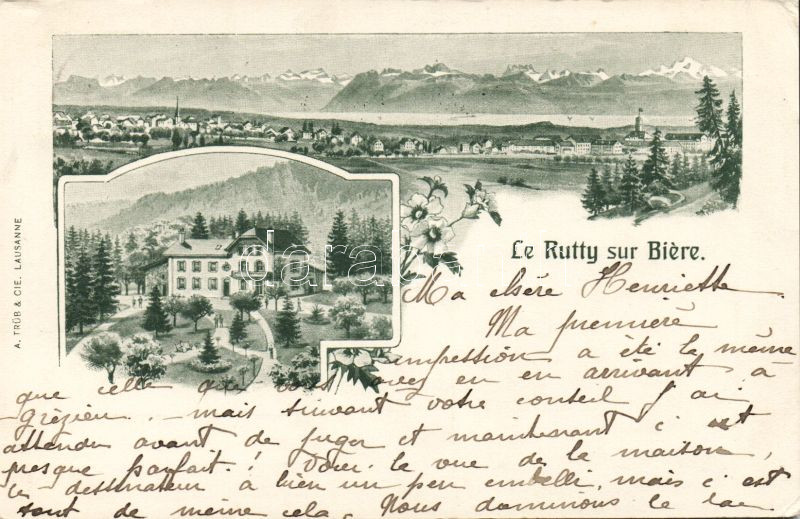 Le Rutty sur Bière.
A. TRÜB & CIE. LAUSANNE
darabanth
Ma chère Henriette
Ma première
impression a été la même
que celle que vous avez eu en arrivant à
grézieu. - mais suivant votre conseil j'ai
attendu avant de juger et maintenant c'est
presque parfait! Voici la vue de la maison,
le dessinateur a bien un peu embelli, mais c'est
tout de même cela. Nous dominons le lac